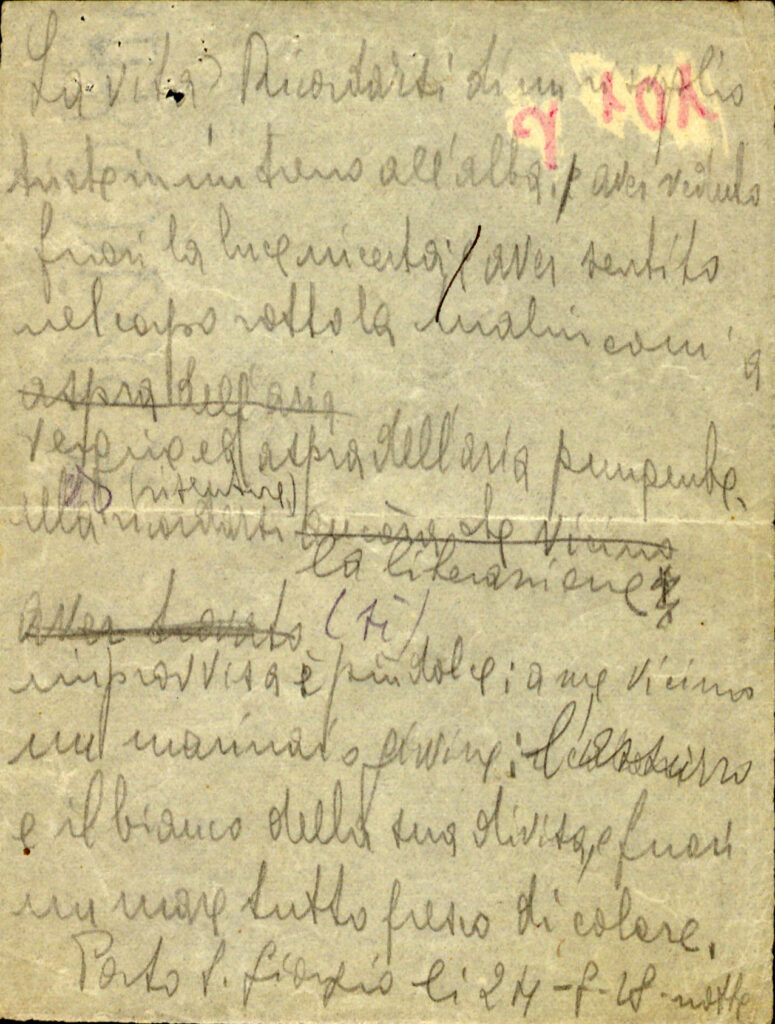 La vita? Ricordarsi di un risveglio
triste in un treno all'alba; aver veduto
fuori la luce incerta; aver sentito
nel corpo rotto la malinconia
aspra dell'aria
vergine ed aspra dell'aria pungente.
(risentire)
Ma ricordarsi ancora che vicino
la liberazione
aver trovato (si)
improvvisa è più dolce: a me vicino
un marinaio giovine: l'azzurro
e il bianco della sua divisa, e fuori
un mare tutto fresco di colore.
Porto S. Giorgio li 24-8-28 notte